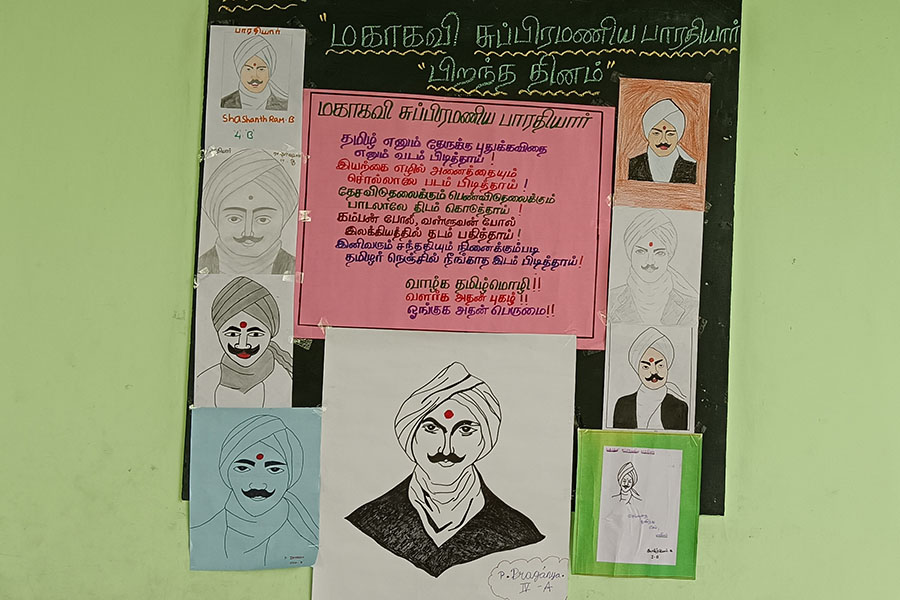 "மகாகவி சுப்பிரமணிய பாரதியார்
"பிறந்த தினம்"
பாரதியார்
Shashanth Ram.B
4 B
மகாகவி சுப்பிரமணிய பாரதியார்
தமிழ் எனும் தேருக்கு புதுக்கவிதை
எனும் வடம் பிடித்தாய் !
இயற்கை எழில் அனைத்தையும்
சொல்லாலே படம் பிடித்தாய் !
தேசவிடுதலைக்கும் பெண்விடுதலைக்கும்
பாடலாலே திடம் கொடுத்தாய் !
கம்பன் போல், வள்ளுவன் போல்
இலக்கியத்தில் தடம் பதித்தாய் !
இனிவரும் சந்ததியும் நினைக்கும்படி
தமிழர் நெஞ்சில் நீங்காத இடம் பிடித்தாய் !
வாழ்க தமிழ்மொழி !!
வளர்க அதன் புகழ் !!
ஓங்குக அதன் பெருமை !!
P. Dragánya.
IV - A